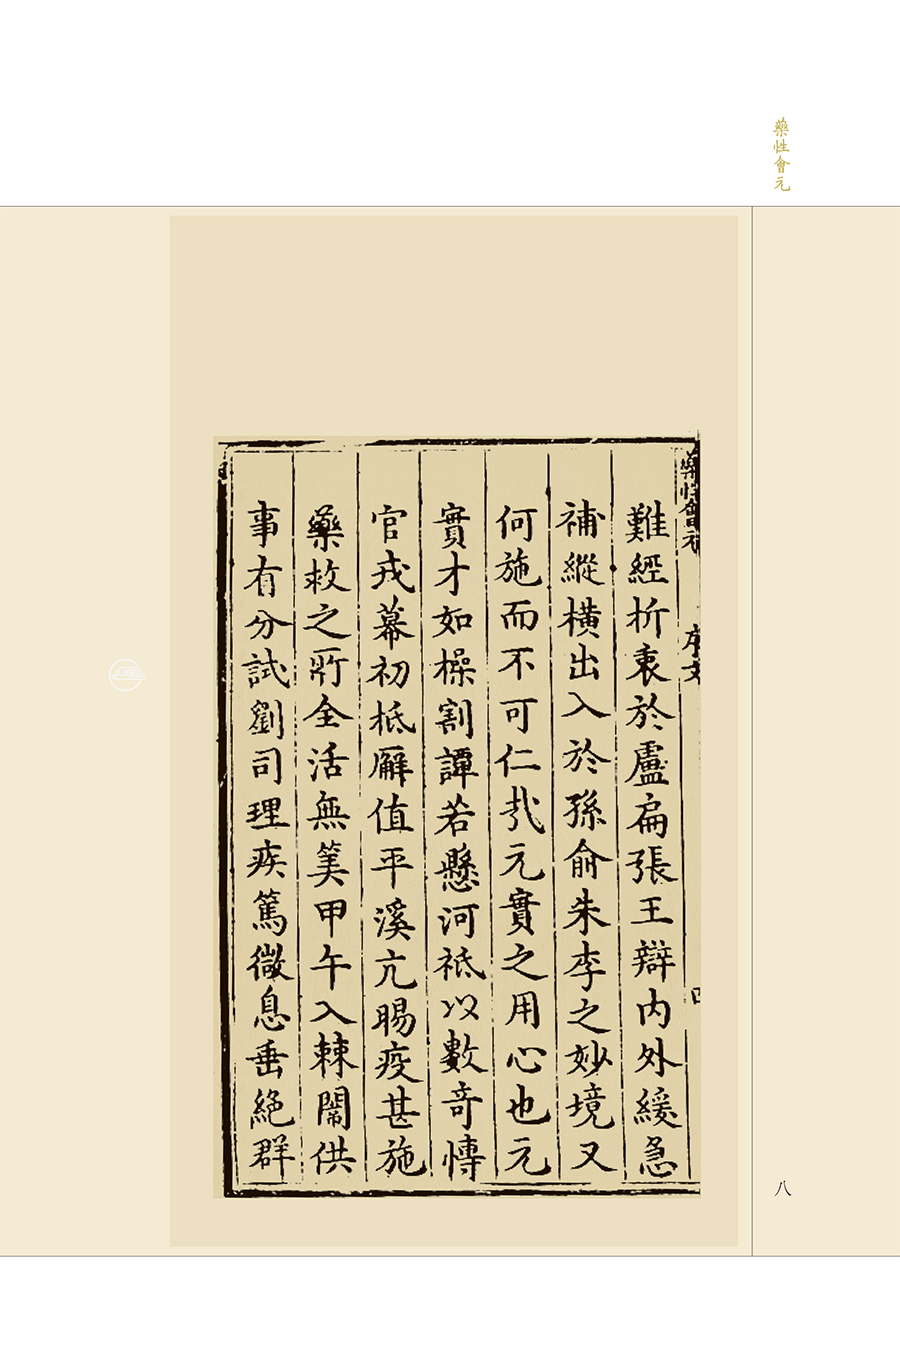 藥性會元
難經折衷於盧扁張王辯内外緩急
補縱橫出入於孫俞朱李之妙境又
何施而不可仁㦲元實之用心也元
實才如橾割譚若懸河祗以數奇慱
官戎幕初柢廨值平溪亢暘疫甚施
藥救之所全活無筭甲午入棘闈供
事有分試劉司理疾篤微息垂絶群
序文
八